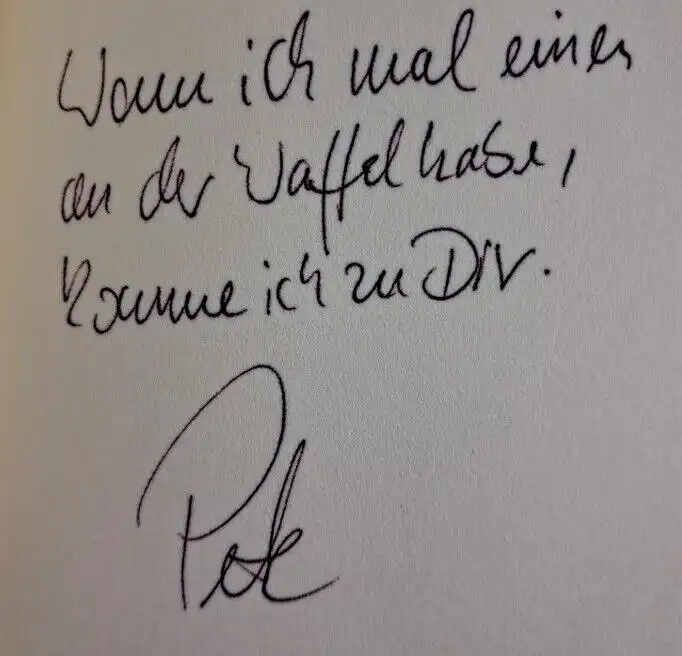 Wenn ich mal einen
an der Waffel habe,
komme ich zu Dir.